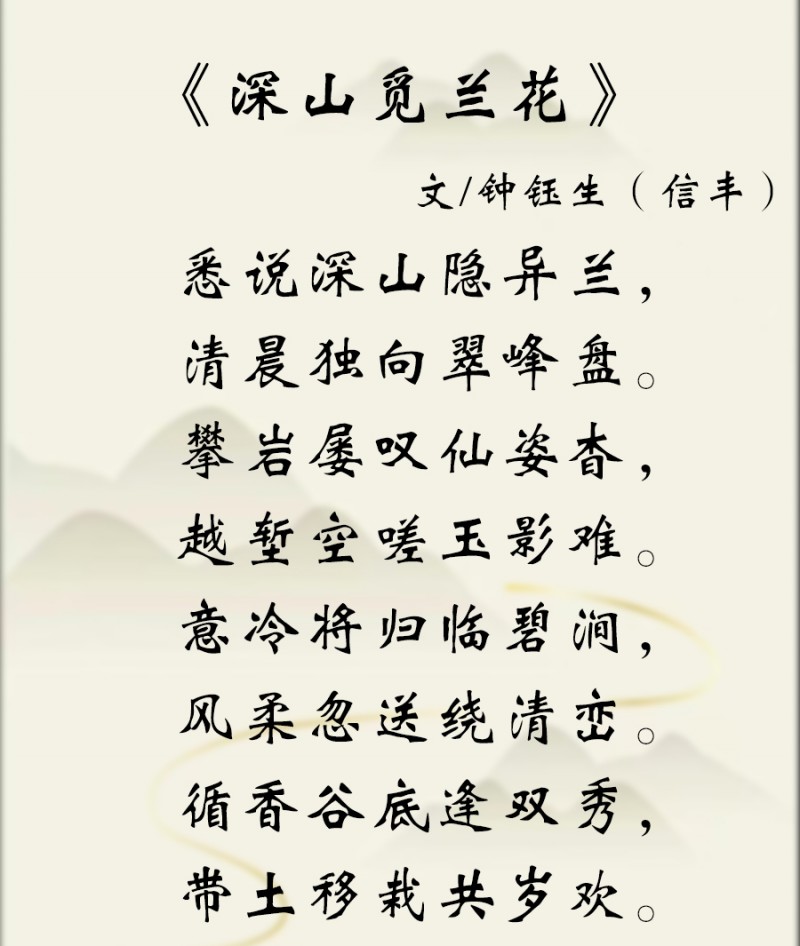 《深山觅兰花》
文/钟钰生（信丰）
悉说深山隐异兰，
清晨独向翠峰盘。
攀岩屡叹仙姿杳，
越堑空嗟玉影难。
意冷将归临碧涧，
风柔忽送绕清峦。
循香谷底逢双秀，
带土移栽共岁欢。